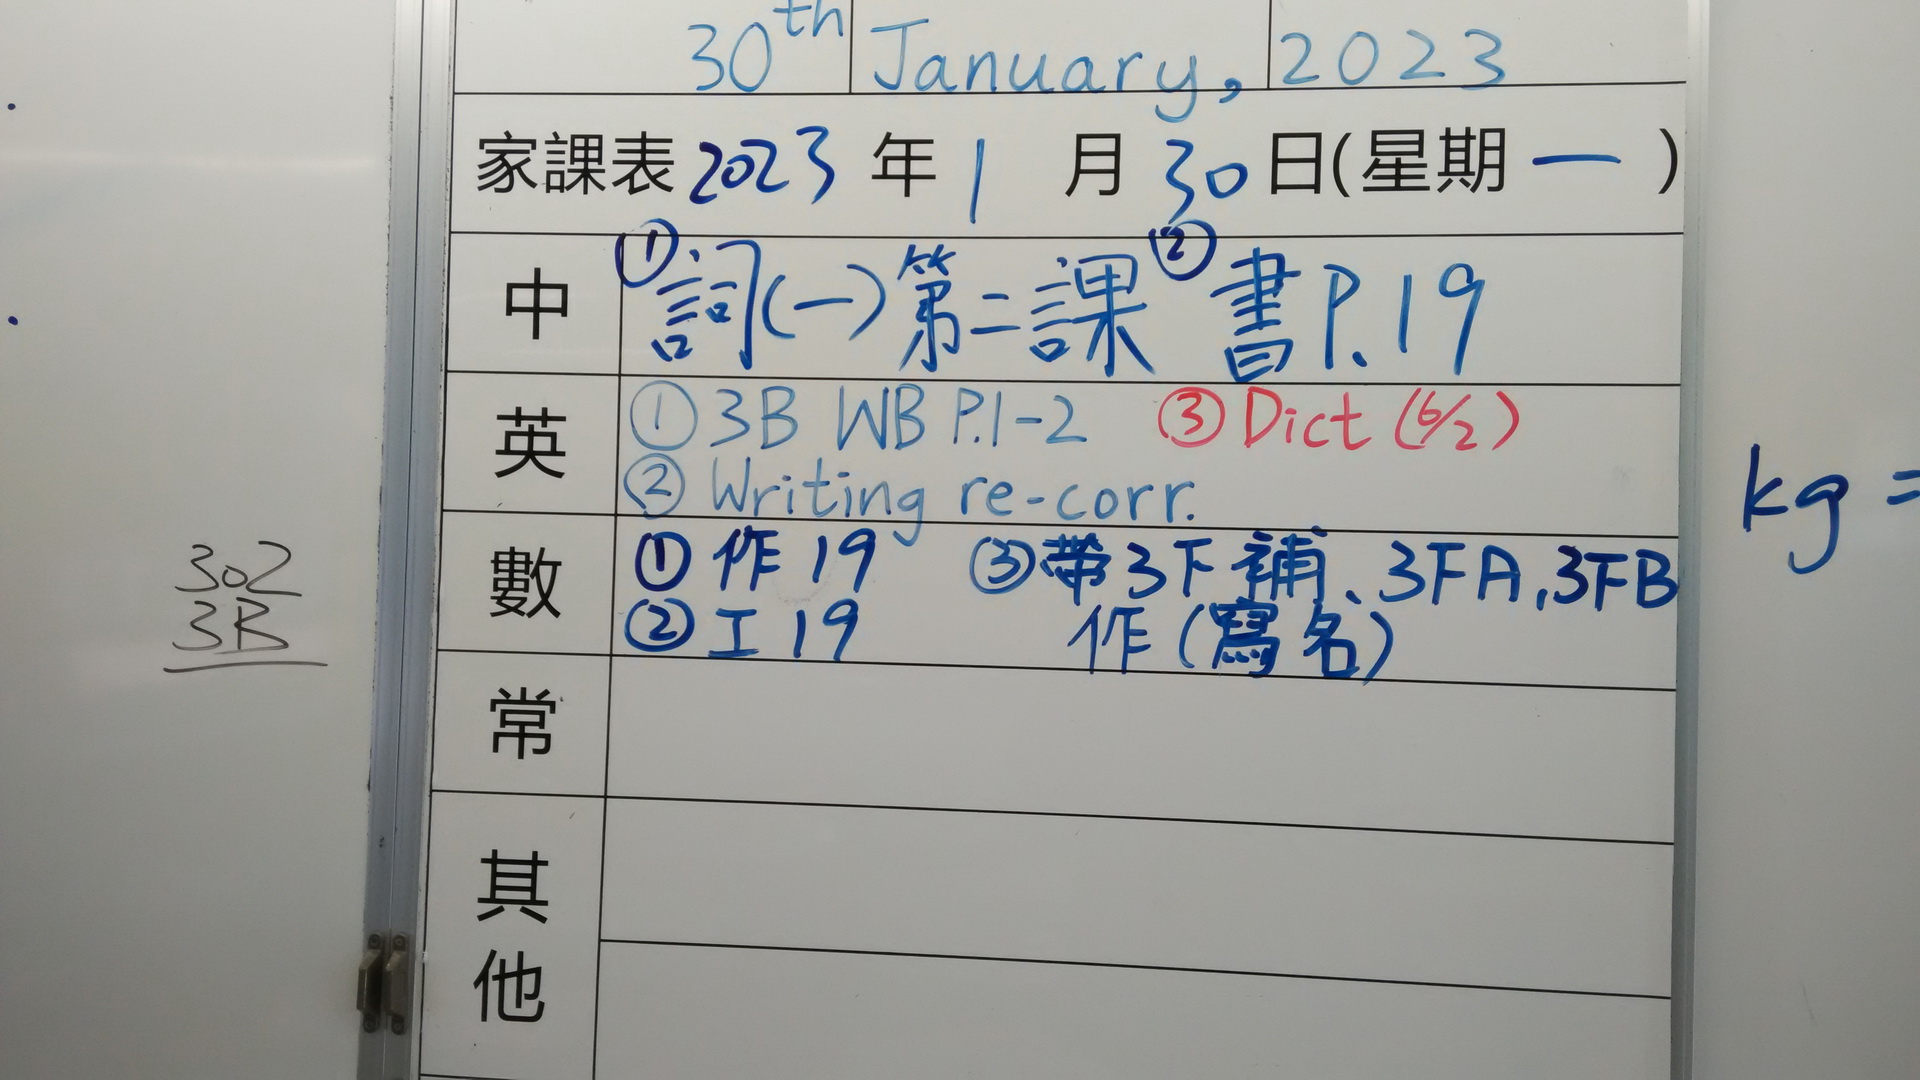 30th January, 2023
家課表 2023 年 1 月 30 日(星期 一 )
中 ① 詞(一)第二課 ② 書 P.19
英 ① 3B WB P.1-2 ③ Dict (6/2)
② Writing re-corr.
數 ① 作 19 ③ 帶 3下 補、3下A, 3下B
② 工 19 作 (寫名)
常
其
他
302
3B
kg =